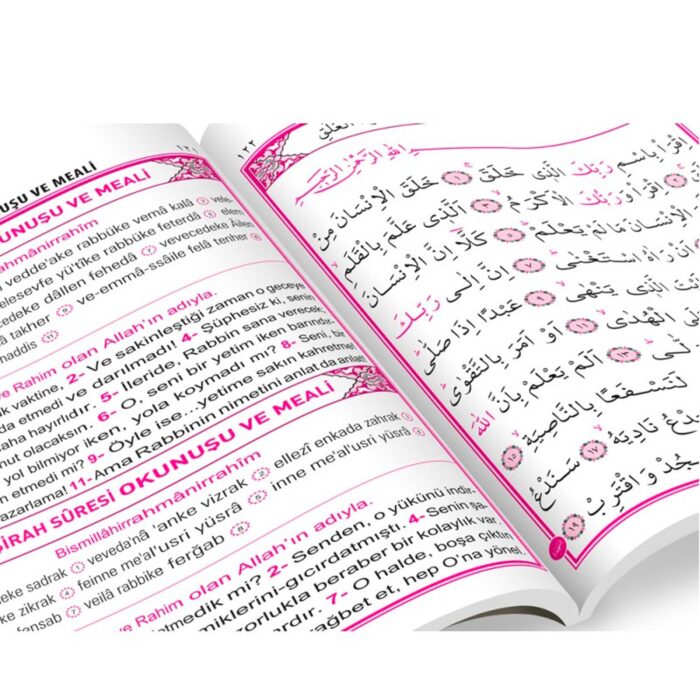 ١٢١
UŞU VE MEALİ
UNUŞU VE MEALİ
ahmânirrahîm
vedde'ake rabbüke vemâ kalâ ٣ vele-
elesevfe yü'tîke rabbüke feterdâ ٥ elem
cedeke dâllen fehedâ ٧ vevecedeke Âilen
â takher ٩ ve-emmâ-ssâile felâ tenher ١٠
haddis ١١
ve Rahim olan Allah'ın adıyla.
k vaktine, 2- Ve sakinleştiği zaman o geceye
da etmedi ve darılmadı! 4- Şüphesiz ki, senin
aha hayırlıdır. 5- İleride, Rabbin sana verecek,
nut olacaksın. 6- O, seni bir yetim iken barındır-
yol bilmiyor iken, yola koymadı mı? 8- Seni,
n etmedi mi? 9- Öyle ise...yetime sakın kahretme!
azarlama! 11- Ama Rabbinin nimetini anlat da anlat!
ŞİRAH SÛRESİ OKUNUŞU VE MEALİ
Bismillâhirrahmânirrahîm
eke sadrak ١ veveda'nâ 'anke vizrak ٢ ellezî enkada zahrak ٣
eke zikrak ٤ feinne me'al'usri yüsrâ ٥ inne me'al'usri yüsrâ ٦
fensab ٧ veilâ rabbike ferğab ٨
ve Rahim olan Allah'ın adıyla.
etmedik mi? 2- Senden, o yükünü indir-
miklerini-gıcırdatmıştı. 4- Senin şa-
zorlukla beraber bir kolaylık var.
ardır. 7- O halde, boşa çıktın
rağbet et, hep O'na yönel.
١٢٢
العلق
بِسْمِ اللّٰهِ الرَّحْمٰنِ الرَّحٖيمِ
اِقْرَأْ بِاسْمِ رَبِّكَ الَّذٖى خَلَقَ ١ خَلَقَ الْاِنْسَانَ مِنْ
اِقْرَأْ وَرَبُّكَ الْاَكْرَمُ ٣ اَلَّذٖى عَلَّمَ بِالْقَلَمِ
الْاِنْسَانَ مَا لَمْ يَعْلَمْ ٥ كَلَّا اِنَّ الْاِنْسَانَ
اَنْ رَاٰهُ اسْتَغْنٰى ٧ اِنَّ اِلٰى رَبِّكَ
الَّذٖى يَنْهٰى ٩ عَبْدًا اِذَا صَلّٰى
الْهُدٰى ١١ اَوْ اَمَرَ بِالتَّقْوٰى
لّٰى ١٣ اَلَمْ يَعْلَمْ بِاَنَّ اللّٰهَ
لَنَسْفَعًا بِالنَّاصِيَةِ ١٥
دْعُ نَادِيَهُ ١٧ سَنَدْعُ
جُدْ وَاقْتَرِبْ ١٩